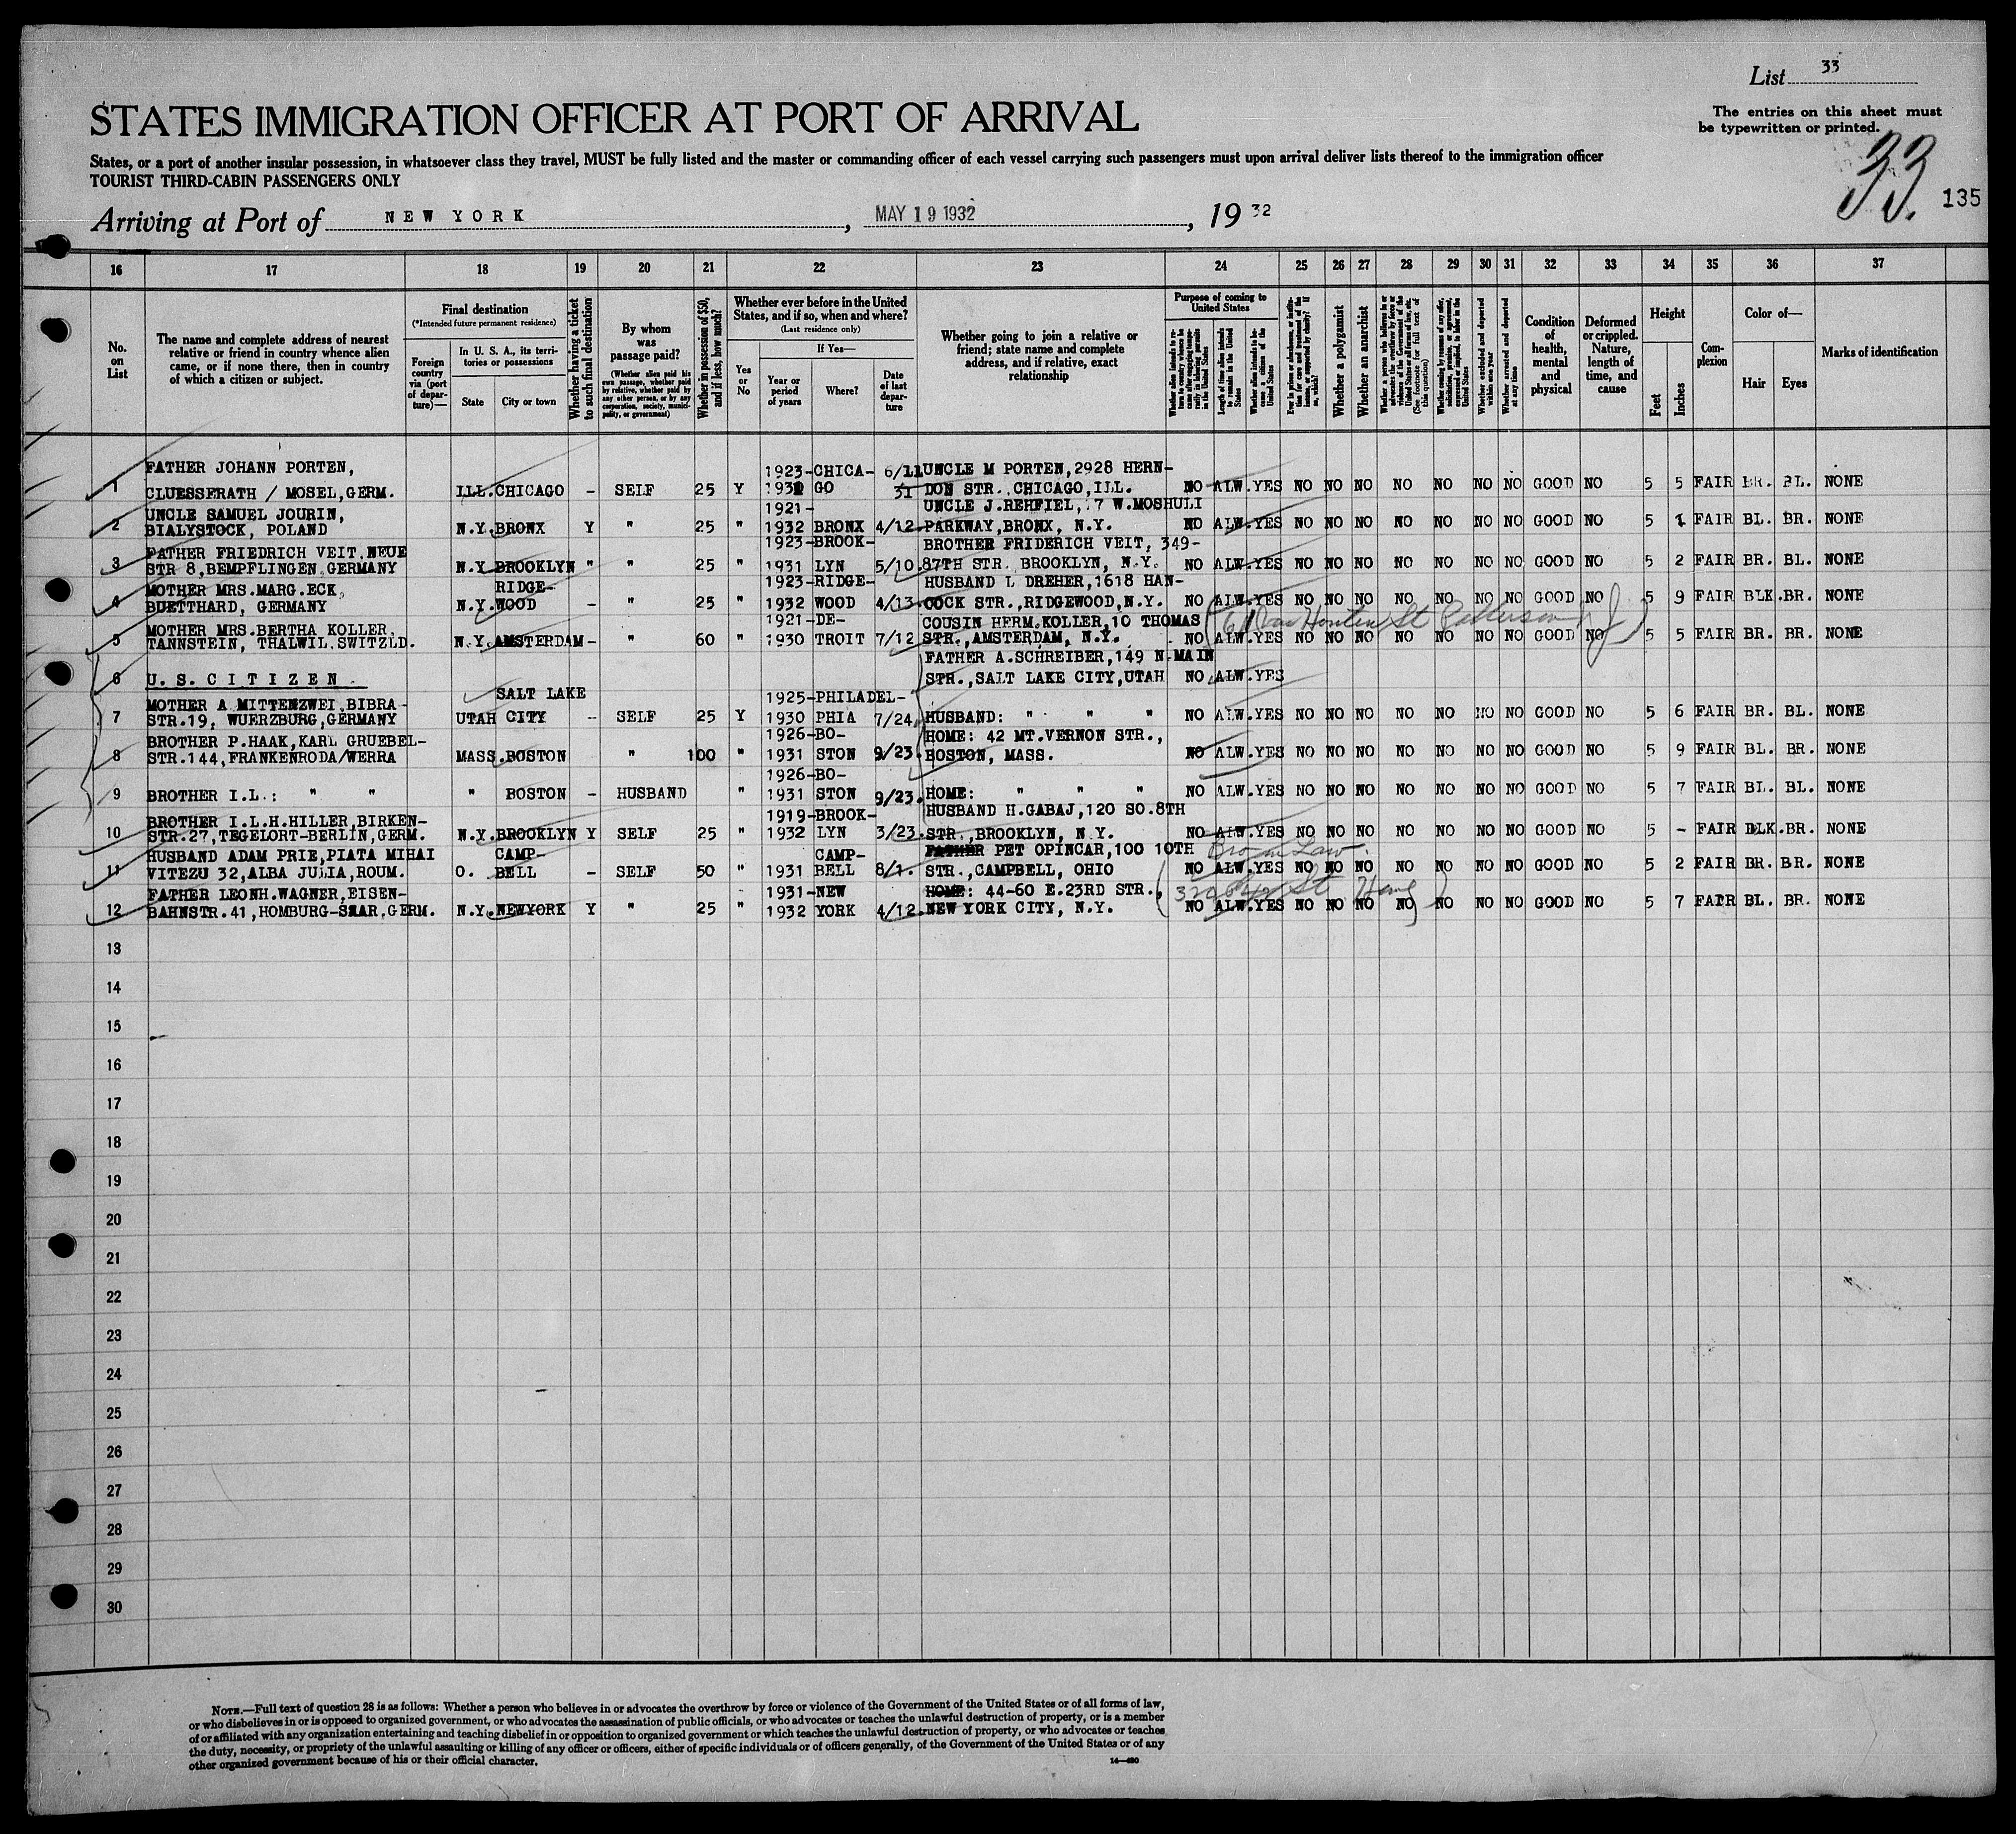 List 33
STATES IMMIGRATION OFFICER AT PORT OF ARRIVAL
The entries on this sheet must
be typewritten or printed.
States, or a port of another insular possession, in whatsoever class they travel, MUST be fully listed and the master or commanding officer of each vessel carrying such passengers must upon arrival deliver lists thereof to the immigration officer
TOURIST THIRD-CABIN PASSENGERS ONLY
33. 135
Arriving at Port of NEW YORK, MAY 19 1932, 19 32
16 17 18 19 20 21 22 23 24 25 26 27 28 29 30 31 32 33 34 35 36 37
No. on List
The name and complete address of nearest relative or friend in country whence alien came, or if none there, then in country of which a citizen or subject.
Final destination
(*Intended future permanent residence)
Foreign country via (port of departure)—
In U. S. A., its territories or possessions
State City or town
Whether having a ticket to such final destination
By whom was passage paid?
(Whether alien paid his own passage, whether paid by relative, whether paid by any other person, or by any corporation, society, municipality, or government)
Whether in possession of $50, and if less, how much?
Whether ever before in the United States, and if so, when and where?
(Last residence only)
Yes or No
If Yes—
Year or period of years
Where?
Date of last departure
Whether going to join a relative or friend; state name and complete address, and if relative, exact relationship
Purpose of coming to United States
Length of time alien intends to remain in the United States
Whether alien intends to become a citizen of the United States
Whether a polygamist
Whether an anarchist
(See footnote for full text of this question)
Whether arrested and deported at any time
Condition of health, mental and physical
Deformed or crippled. Nature, length of time, and cause
Height
Feet Inches
Complexion
Color of—
Hair Eyes
Marks of identification
FATHER JOHANN PORTEN, 1923-CHICA- 6/11 UNCLE M PORTEN,2928 HERN-
1 CLUESSERATH / MOSEL,GERM. ILL.CHICAGO - SELF 25 Y 1931 GO 31 DON STR.,CHICAGO,ILL. NO ALW.YES NO NO NO NO NO NO NO GOOD NO 5 5 FAIR BR. BL. NONE
UNCLE SAMUEL JOURIN, 1921- UNCLE J.REHFIEL, 7 W.MOSHULI
2 BIALYSTOCK, POLAND N.Y.BRONX Y " 25 " 1932 BRONX 4/12 PARKWAY,BRONX, N.Y. NO ALW.YES NO NO NO NO NO NO NO GOOD NO 5 1 FAIR BL. BR. NONE
FATHER FRIEDRICH VEIT,NEUE 1923-BROOK- BROTHER FRIDERICH VEIT, 349-
3 STR 8,BEMPFLINGEN GERMANY N.Y.BROOKLYN " " 25 " 1931 LYN 5/10 87TH STR. BROOKLYN, N.Y. NO ALW.YES NO NO NO NO NO NO NO GOOD NO 5 2 FAIR BR. BL. NONE
MOTHER MRS.MARG.ECK, RIDGE- 1923-RIDGE- HUSBAND L DREHER,1618 HAN-
4 BUETTHARD, GERMANY N.Y.WOOD - " 25 " 1932 WOOD 4/13 COCK STR.,RIDGEWOOD,N.Y. NO ALW.YES NO NO NO NO NO NO NO GOOD NO 5 9 FAIR BLK.BR. NONE
MOTHER MRS.BERTHA KOLLER, 1921-DE- COUSIN HERM.KOLLER,10 THOMAS (61 Van Houten St Patterson NJ)
5 TANNSTEIN, THALWIL.SWITZLD. N.Y.AMSTERDAM - " 60 " 1930 TROIT 7/12 STR.,AMSTERDAM, N.Y. NO ALW.YES NO NO NO NO NO NO NO GOOD NO 5 5 FAIR BR. BR. NONE
FATHER A.SCHREIBER,149 N.MAIN
6 U.S. CITIZEN. STR.,SALT LAKE CITY,UTAH NO ALW.YES
MOTHER A MITTENZWEI,BIBRA- SALT LAKE 1925-PHILADEL-
7 STR.19, WUERZBURG,GERMANY UTAH CITY - SELF 25 Y 1930 PHIA 7/24 HUSBAND: " " " NO ALW.YES NO NO NO NO NO NO NO GOOD NO 5 6 FAIR BR. BL. NONE
BROTHER P.HAAK,KARL GRUEBEL- 1926-BO- HOME: 42 MT.VERNON STR.,
8 STR.144,FRANKENRODA/WERRA MASS.BOSTON " 100 " 1931 STON 9/23 BOSTON, MASS. NO ALW.YES NO NO NO NO NO NO NO GOOD NO 5 9 FAIR BL. BR. NONE
1926-BO-
9 BROTHER I.L.: " " " BOSTON - HUSBAND " 1931 STON 9/23. HOME: " " " NO ALW.YES NO NO NO NO NO NO NO GOOD NO 5 7 FAIR BL. BL. NONE
BROTHER I.L.H.HILLER,BIRKEN- 1919-BROOK- HUSBAND H.GABAJ,120 SO.8TH
10 STR.27,TEGELORT-BERLIN,GERM. N.Y.BROOKLYN Y SELF 25 " 1932 LYN 3/23. STR.,BROOKLYN, N.Y. NO ALW.YES NO NO NO NO NO NO NO GOOD NO 5 - FAIR BLK.BR. NONE
HUSBAND ADAM PRIE,PIATA MIHAI CAMP- CAMP- FATHER PET OPINCAR,100 10TH Bro in Law.
11 VITEZU 32,ALBA JULIA,ROUM. O. BELL - SELF 50 " 1931 BELL 8/1. STR.,CAMPBELL, OHIO NO ALW.YES NO NO NO NO NO NO NO GOOD NO 5 2 FAIR BR. BR. NONE
FATHER LEONH.WAGNER,EISEN- 1931-NEW HOME: 44-60 E.23RD STR.,
12 BAHNSTR.41,HOMBURG-SAAR.GERM. N.Y.NEWYORK Y " 25 " 1932 YORK 4/12. NEW YORK CITY, N.Y. NO ALW.YES NO NO NO NO NO NO NO GOOD NO 5 7 FAIR BL. BR. NONE
13
14
15
16
17
18
19
20
21
22
23
24
25
26
27
28
29
30
NOTE.—Full text of question 28 is as follows: Whether a person who believes in or advocates the overthrow by force or violence of the Government of the United States or of all forms of law,
or who disbelieves in or is opposed to organized government, or who advocates the assassination of public officials, or who advocates or teaches the unlawful destruction of property, or is a member
of or affiliated with any organization entertaining and teaching disbelief in or opposition to organized government or which teaches the unlawful destruction of property, or who advocates or teaches
the duty, necessity, or propriety of the unlawful assaulting or killing of any officer or officers, either of specific individuals or of officers generally, of the Government of the United States or of any
other organized government because of his or their official character. 14—480